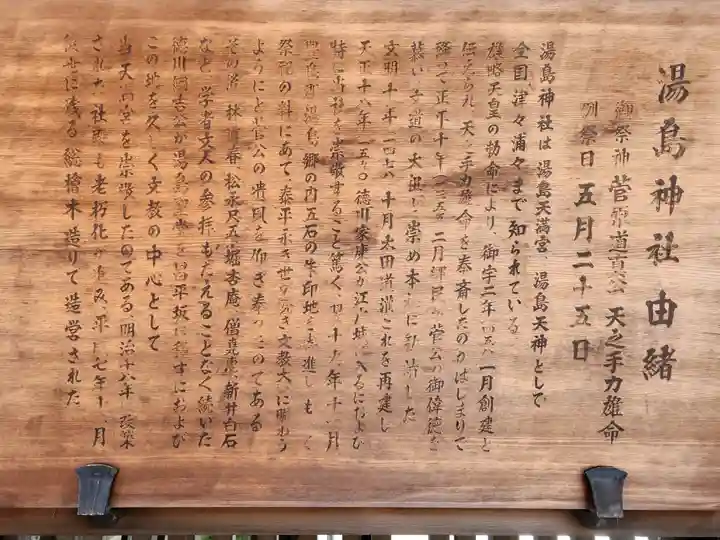 湯島神社由緒
御祭神 菅原道真公 天之手力雄命
例祭日 五月二十五日
湯島神社は湯島天満宮、湯島天神として
全国津々浦々まで知られている
雄略天皇の勅命により、御宇二年 一月創建と
伝えられ 天之手力雄命を奉斎したのがはじまりで
降って正平十年 二月郷民が菅公の御偉徳を
慕い 文道の大祖と崇め本社に勧請した
文明十年 十月太田道灌これを再建し
天正十八年 徳川家康公が江戸城に入るにおよび
特に当社を崇敬すること篤く、翌十九年十一月
豊島郡湯島郷の内五石の朱印地を寄進しもって
祭祀の料にあて、泰平永き世が続き文教大いに賑わう
ようにと菅公の遺風を仰ぎ奉ったのである
その後、林道春、松永尺五、堀杏庵、僧堯恵、新井白石
など 学者文人の参拝もたえることなく続いた
徳川綱吉公が湯島聖堂を昌平坂に移すにおよび
この地を久しく文教の中心として
当天満宮を崇敬したのである 明治十八年 改築
された社殿も老朽化が進み、平成七年十二月
後世に残る総檜木造りで造営された